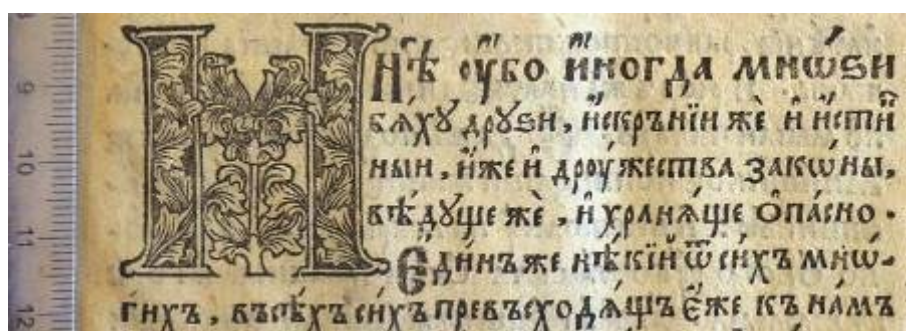 8
9
10
11
12
Мнѣ ᲂу҆́бо и҆ногда̀ мнѡ́ѕи
бѧ́хꙋ дрꙋ́ѕи, и҆́скрънїи жѐ и҆ и҆́стин
нїи, и҆́же и҆ дрꙋ́жества зако́ны,
вѣ́дꙋще жѐ, и҆ хранѧ́ще ѻ҆па́сно.
Є҆ди́нъ же нѣ́кїй ѿ си́хъ мнѡ́-
гихъ, въсѣ́хъ си́хъ превъсходѧ́щъ є҆́же къ на́мъ